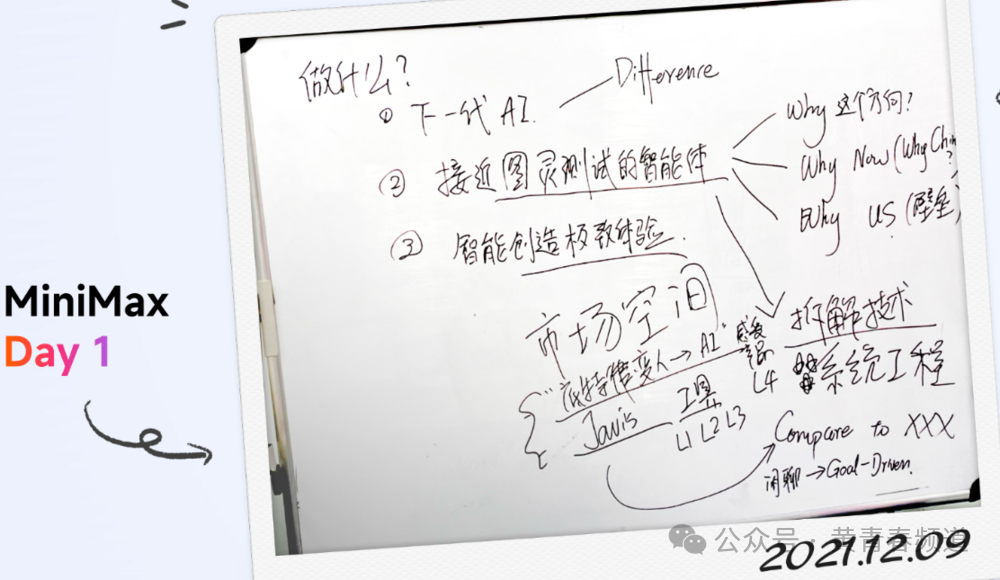 MiniMax
Day 1
做什么?
① 下一代 AI.
Difference
② 接近图灵测试的智能体
Why 这个方向?
Why Now (Why Chin
?
Why US (壁垒)
③ 智能创造极致体验.
市场空间
拆解技术
系统工程
变人→AI"
感受
L4
Javis
工具
L1 L2 L3
Compare to XXX
闲聊→Goal-Driven.
公众号·黄青春频道
2021.12.09